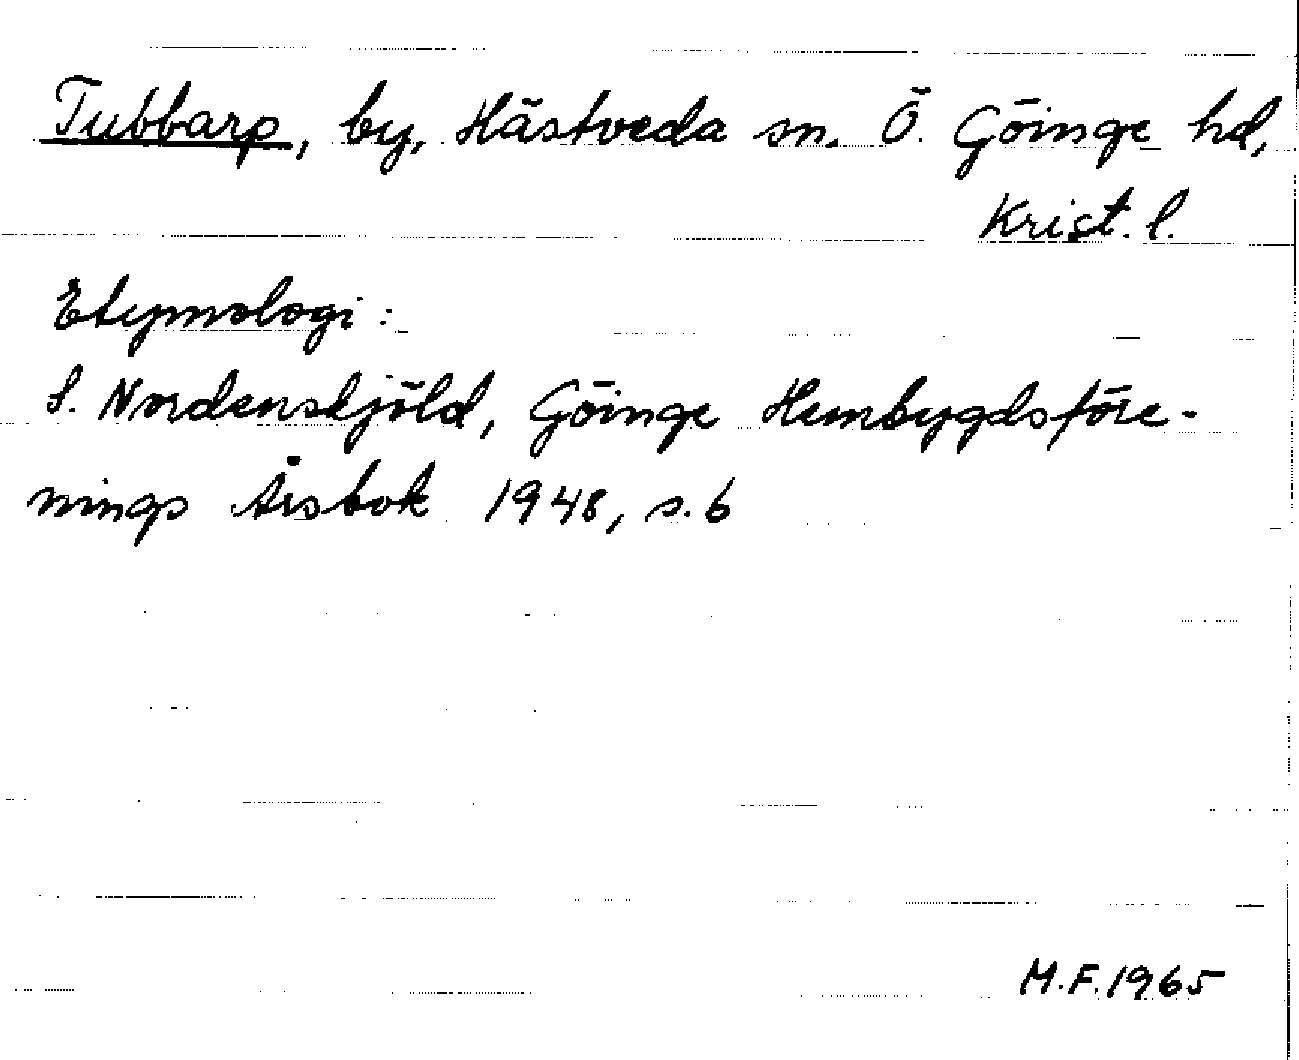 Tubbarp, by, Hästveda sn. Ö. Göinge hd,
Krist. l.
Etymologi:
S. Nordenskjöld, Göinge Hembygdsföre-
nings Årsbok 1948, s. 6
M.F. 1965